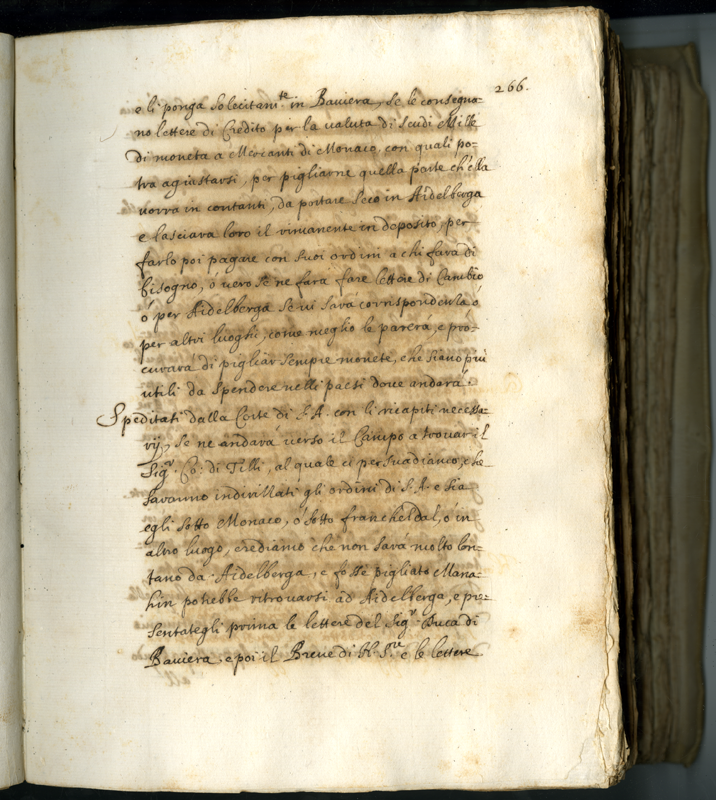 266.
e li ponga solecitam.te in Baviera, se le consegno=
no lettere di Credito per la valuta di scudi Mille
di moneta a Mercanti di Monaco, con quali po=
tra agiustarsi, per pigliarne quella parte ch'ella
vorra in contanti, da portare seco in Aidelberga
e lasciara loro il rimanente in deposito, per
farlo poi pagare con suoi ordini a chi fara di
bisogno, ó vero se ne fara fare lettere di Cambio
ó per Aidelberga se vi sará corrispondenza ó
per altri luoghi, come meglio le parerá, e pro=
curará di pigliar sempre monete, che siano piu
utili da spendere nelli paesi dove andará.
Speditati dalla Corte di S. A. con li ricapiti necessa=
rij, se ne andará verso il Campo a trovar il
Sig.r Co: di Tilli, al quale ci persuadiamo, che
saranno indirizzati gli ordini di S. A. e sia
egli sotto Monaco, ó sotto franchedal, ó in
altro luogo, crediamo che non sará molto lon=
tano da Aidelberga, e fosse pigliato Mana=
hin potrebbe ritrovarsi ad Aidelberga, e pre=
sentategli prima le lettere del Sig.r Duca di
Baviera e poi il Breve di N. S.re e le lettere
all'